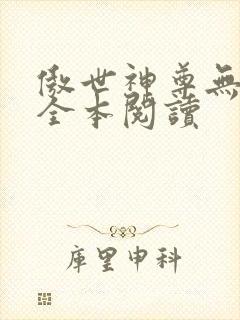 傲世神尊無
全本閱讀
庫里申科